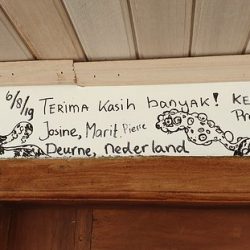 6/8/19
TERIMA KASIH BANYAK!
Josine, Marit, Pierre
Deurne, Nederland
KE